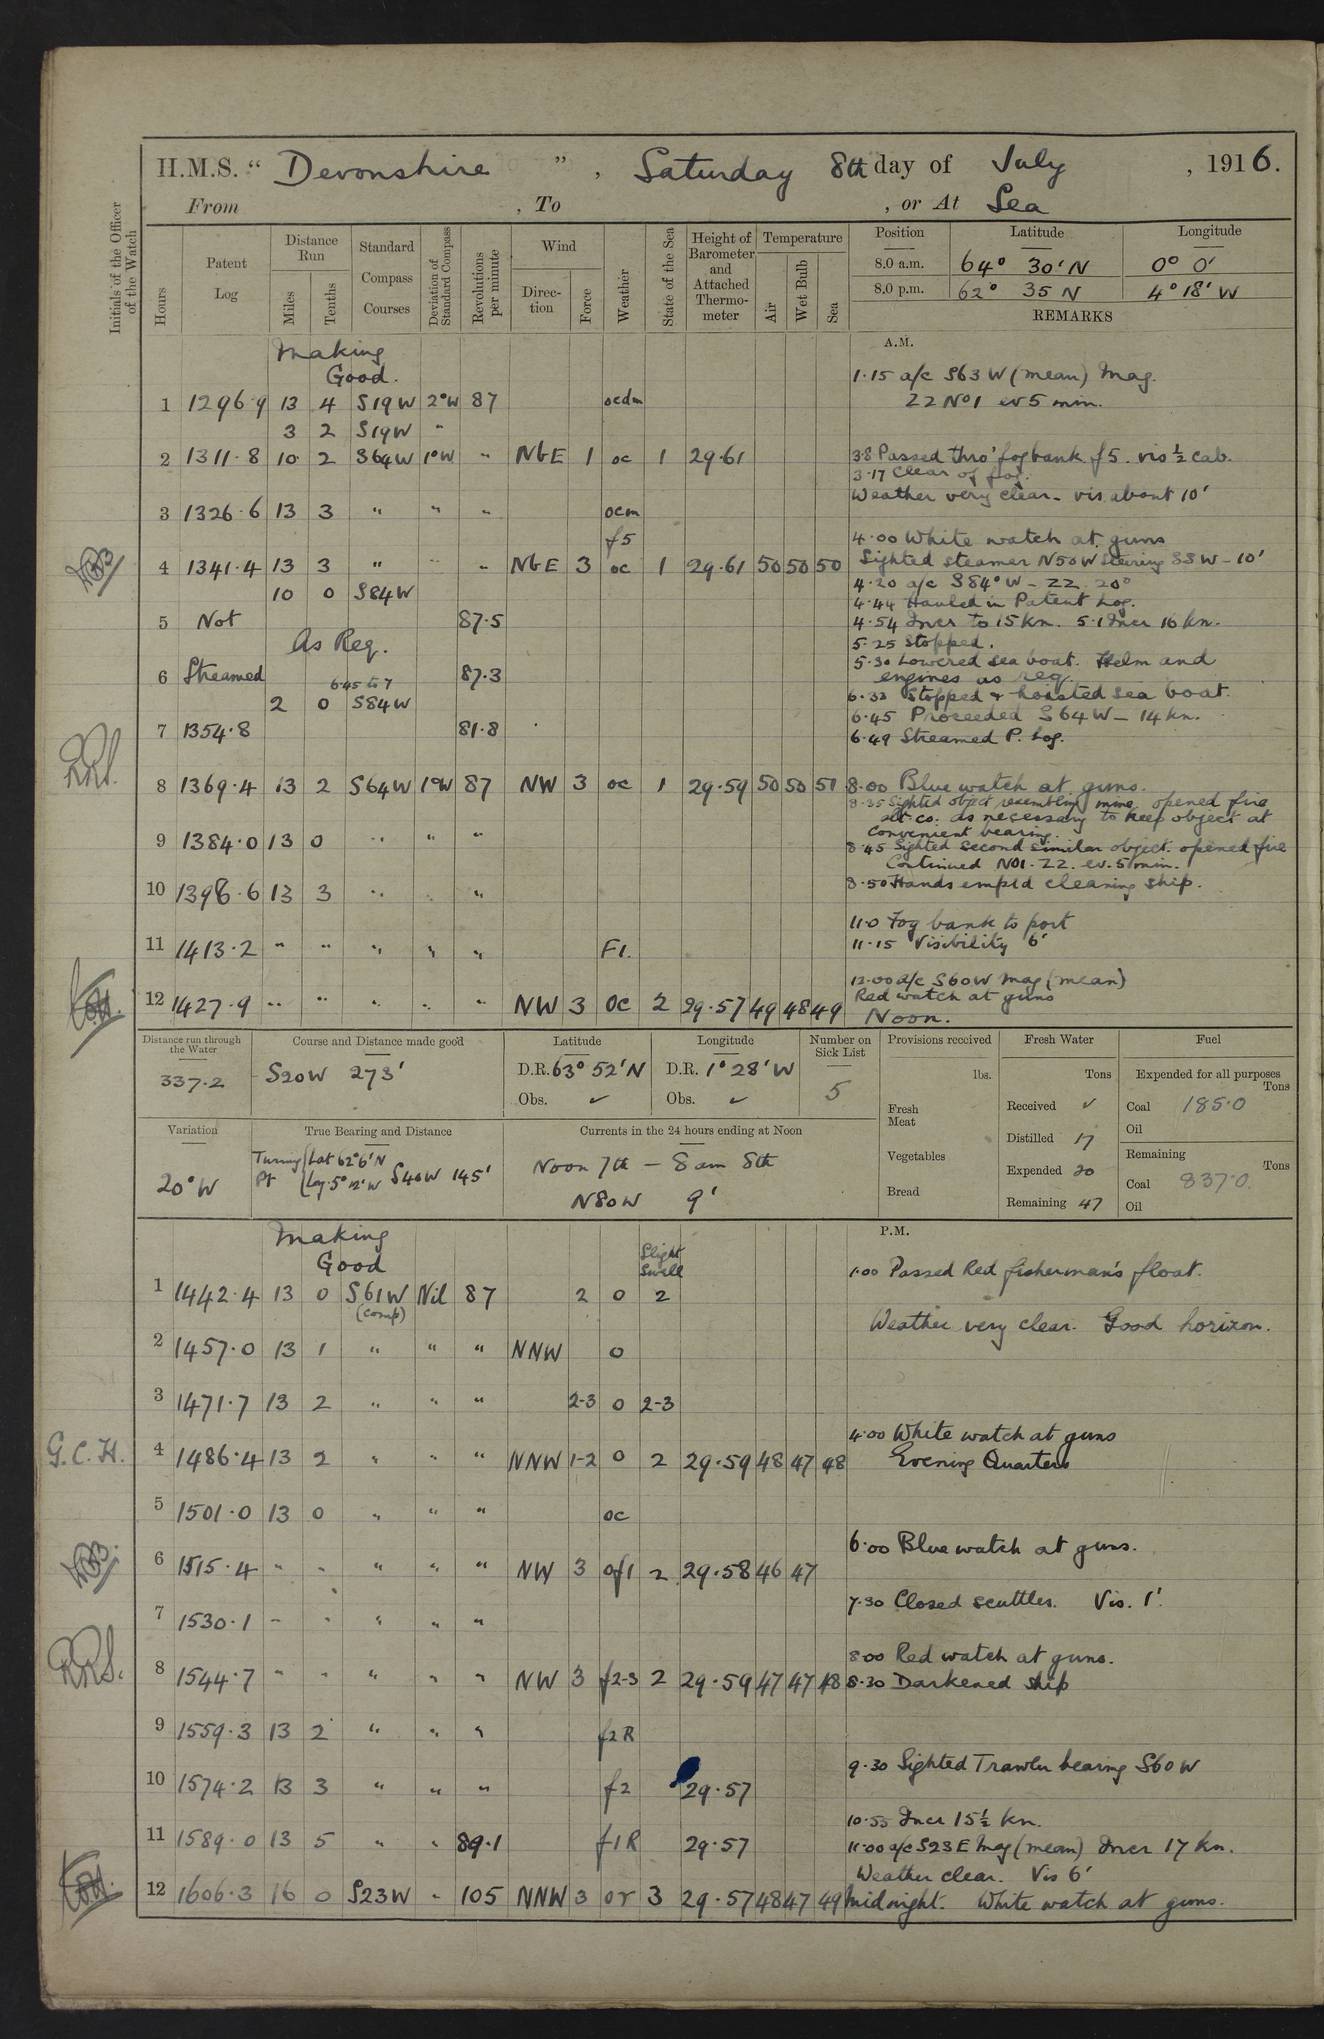 H.M.S. " Devonshire ", Saturday 8th day of July, 1916.
From , To , or At Sea
Initials of the Officer of the Watch
Hours
Patent Log
Distance Run
Miles
Tenths
Standard Compass Courses
Deviation of Standard Compass
Revolutions per minute
Wind
Direction
Force
Weather
State of the Sea
Height of Barometer and Attached Thermometer
Temperature
Air
Wet Bulb
Sea
Position Latitude Longitude
8.0 a.m. 64° 30' N 0° 0'
8.0 p.m. 62° 35 N 4° 18' W
REMARKS
A.M.
Making Good.
1 1296.9 13 4 S19W 2°W 87 ocdm
3 2 S19W "
2 1311.8 10 2 S64W 1°W " NbE 1 oc 1 29.61
3 1326.6 13 3 " " " ocm
f5
4 1341.4 13 3 " " " NbE 3 oc 1 29.61 50 50 50
10 0 S84W
5 Not 87.5
As Req.
6 Streamed 87.3
6.45 to 7
2 0 S84W
7 1354.8 81.8
8 1369.4 13 2 S64W 1°W 87 NW 3 oc 1 29.59 50 50 51
9 1384.0 13 0 " " "
10 1398.6 13 3 " " "
11 1413.2 " " " " " F1.
12 1427.9 " " " " " NW 3 oc 2 29.57 49 48 49
1.15 a/c S63W (mean) Mag.
ZZ No1 ev 5 min.
3.8 Passed thro' fog bank f5. vis ½ cab.
3.17 Clear of fog.
Weather very clear - vis about 10'
4.00 White watch at guns
Sighted steamer N50W steering S8W - 10'
4.20 a/c S84°W - ZZ 20°
4.44 Hauled in Patent Log.
4.54 Incr to 15 kn. 5.1 Incr 16 kn.
5.25 Stopped.
5.30 Lowered sea boat. Helm and
engines as req.
6.33 Stopped & hoisted sea boat.
6.45 Proceeded S64W - 14 kn.
6.49 Streamed P. Log.
8.00 Blue watch at guns.
8.35 Sighted object resembling mine, opened fire
alt co. as necessary to keep object at
convenient bearing.
8.45 Sighted second similar object. opened fire
Continued No1. ZZ. ev. 5 min.
8.50 Hands emp'd cleaning ship.
11.0 Fog bank to port
11.15 Visibility 6'
12.00 a/c S60W Mag (mean)
Red watch at guns
Noon.
Distance run through the Water
337.2
Course and Distance made good
S20W 273'
Latitude
D.R. 63° 52' N
Obs. ✓
Longitude
D.R. 1° 28' W
Obs. ✓
Number on Sick List
5
Provisions received
lbs.
Fresh Meat
Vegetables
Bread
Fresh Water
Tons
Received ✓
Distilled 17
Expended 20
Remaining 47
Fuel
Expended for all purposes
Tons
Coal 185.0
Oil
Remaining
Tons
Coal 837.0
Oil
Variation
20°W
True Bearing and Distance
Turning Pt { Lat 62°6'N
Lg. 5°12'W S40W 145'
Currents in the 24 hours ending at Noon
Noon 7th - 8 am 8th
N80W 9'
P.M.
Making Good
Slight Swell
1 1442.4 13 0 S61W (comp) Nil 87 2 o 2
2 1457.0 13 1 " " " NNW o
3 1471.7 13 2 " " " 2-3 o 2-3
G.C.H. 4 1486.4 13 2 " " " NNW 1-2 o 2 29.59 48 47 48
5 1501.0 13 0 " " " oc
6 1515.4 " " " " " NW 3 of1 2 29.58 46 47
7 1530.1 " " " " "
8 1544.7 " " " " " NW 3 f2-3 2 29.59 47 47 48
9 1559.3 13 2 " " " f2R
10 1574.2 13 3 " " " f2 29.57
11 1589.0 13 5 " " 89.1 f1R 29.57
12 1606.3 16 0 S23W " 105 NNW 3 or 3 29.57 48 47 49
1.00 Passed Red fisherman's float.
Weather very clear. Good horizon.
4.00 White watch at guns
Evening Quarters
6.00 Blue watch at guns.
7.30 Closed scuttles. Vis. 1'.
8.00 Red watch at guns.
8.30 Darkened ship
9.30 Sighted Trawler bearing S60W
10.55 Incr 15½ kn.
11.00 a/c S23E Mag (mean) Incr 17 kn.
Weather clear. Vis 6'
Midnight. White watch at guns.